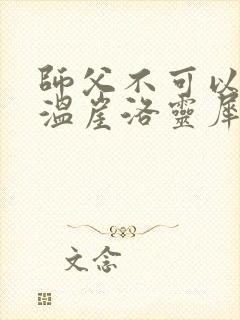 師父不可以
溫崖洛靈犀
文念